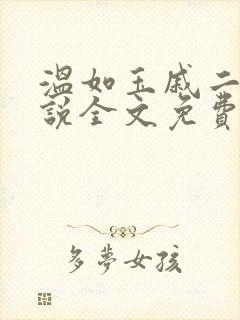 溫如玉戚二
說全文免費
多夢女孩